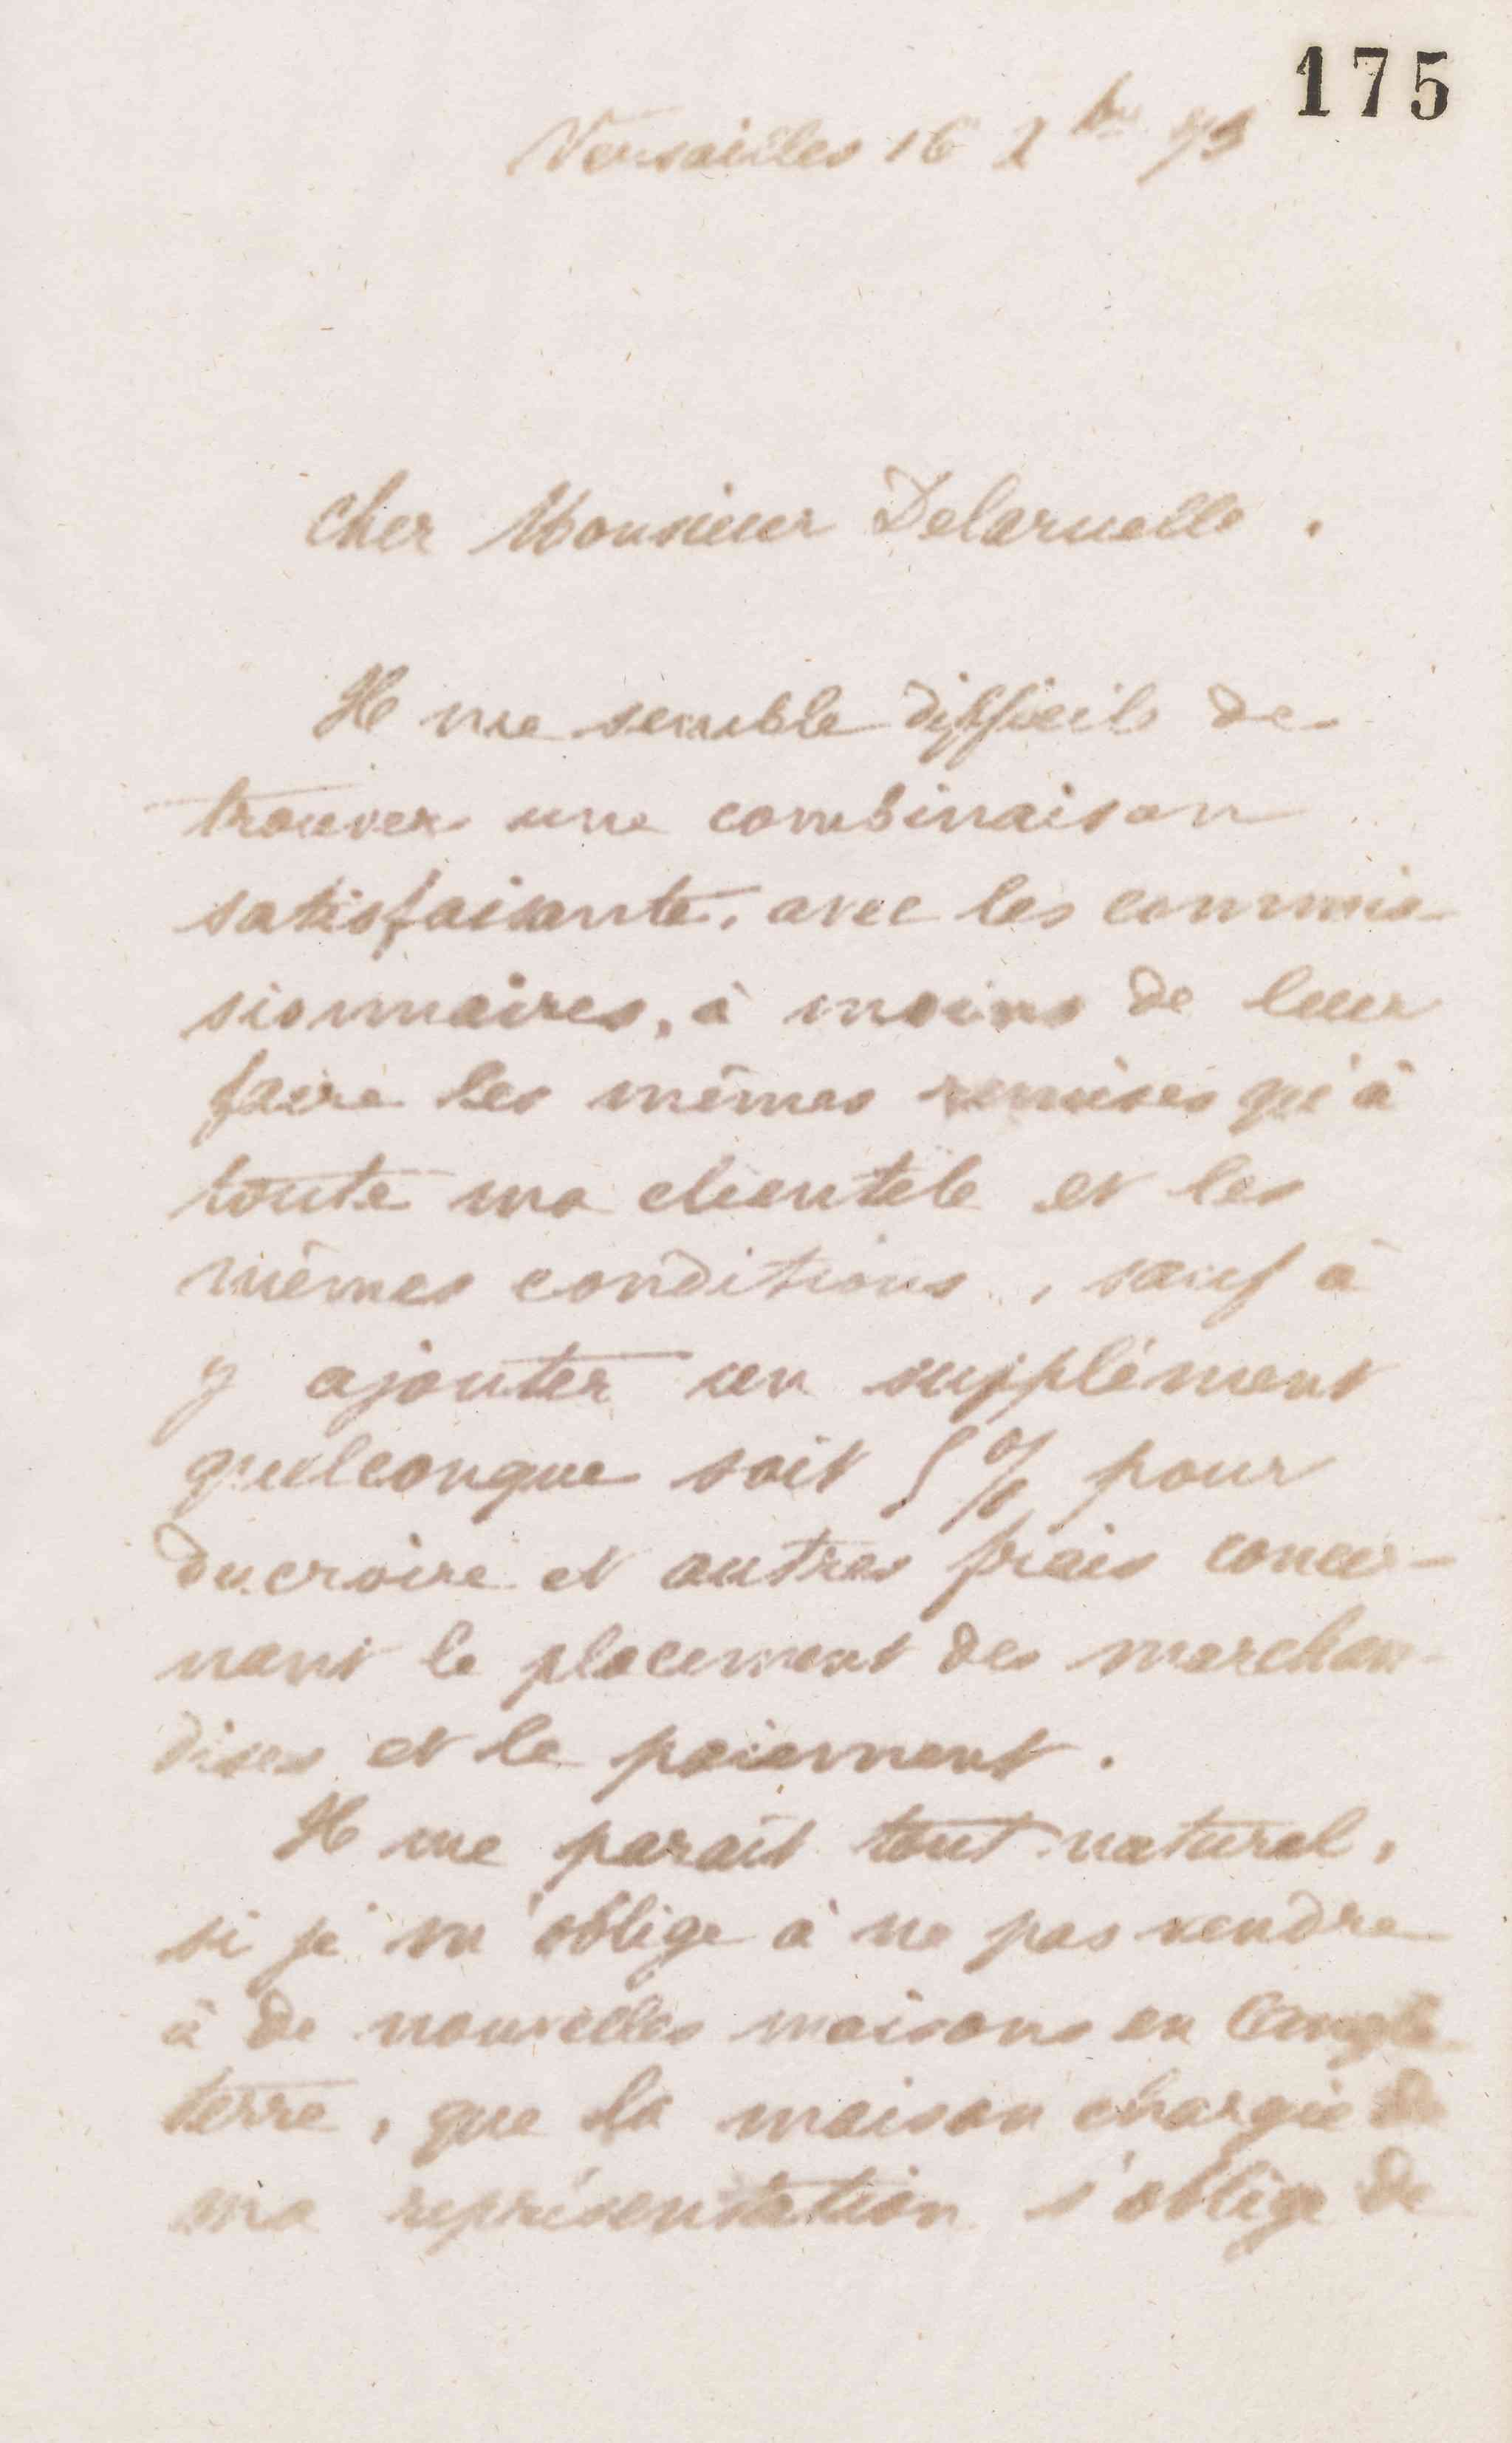 175
Versailles 16 bre 73
Cher Monsieur Delaruelle.
Il me semble difficile de
trouver une combinaison
satisfaisante, avec les commis-
sionnaires, à moins de leur
faire les mêmes remises qu'à
toute ma clientèle et les
mêmes conditions, sauf à
y ajouter un supplément
quelconque soit 5% pour
ducroire et autres frais concer-
nant le placement des marchan-
dises et le paiement.
Il me parait tout naturel,
si je m'oblige à ne pas vendre
à de nouvelles maisons en Angle
terre, que la maison chargée de
ma représentation s'oblige de